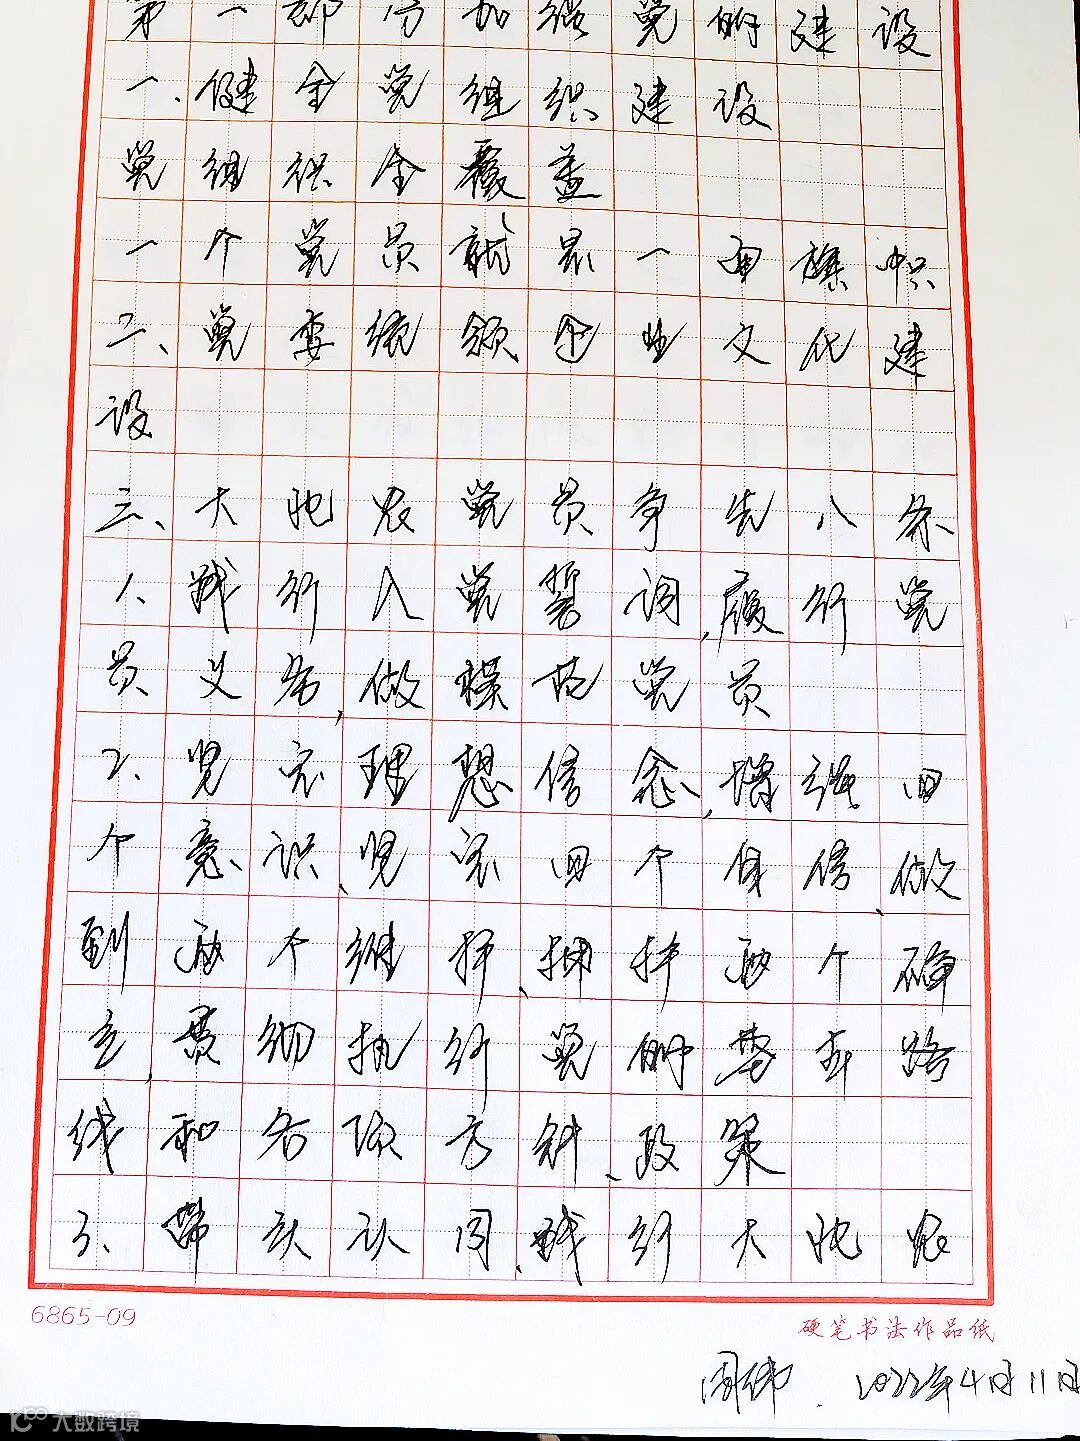 第一部分加强党的建设
一、健全党组织建设
党组织全覆盖
一个党员就是一面旗帜
二、党委统领企业文化建
设
三、大北农党员争先八条
1、践行入党誓词,履行党
员义务,做模范党员
2、坚定理想信念,增强四
个意识、坚定四个自信、做
到两个维护、拥护两个确
立,贯彻执行党的基本路
线和各项方针、政策
3、带头认同、践行大北农
6865-09
硬笔书法作品纸
周伟 2022年4月11日
大数跨境